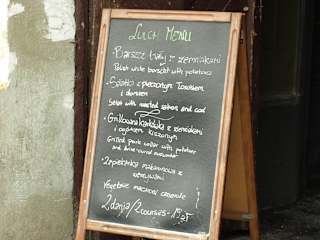 LUCH MENU
• Barszcz biały z ziemniakami
Polish white borscht with potatoes
• Sałatka z pieczonym łososiem
i dorszem
Salad with roasted salmon and cod
• Grillowana karkówka z ziemniakami
i ogórkiem kiszonym
Grilled pork with potatoes
and
• Zapiekanka makaronowa z
warzywami
Vegetable macaroni casserole
2 dania/2 courses -